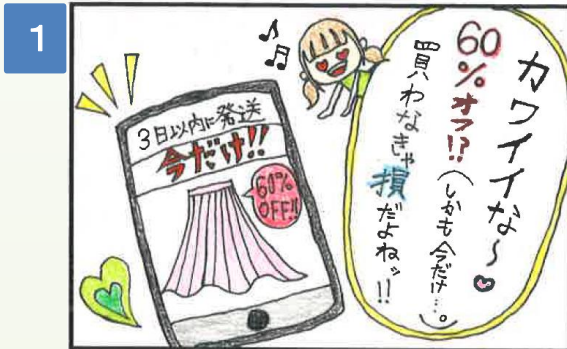 1
カワイイな～♥
60%オフ!?
(しかも今だけ…。)
買わなきゃ損だよねッ!!
3日以内に発送
今だけ!!
60%
OFF!!